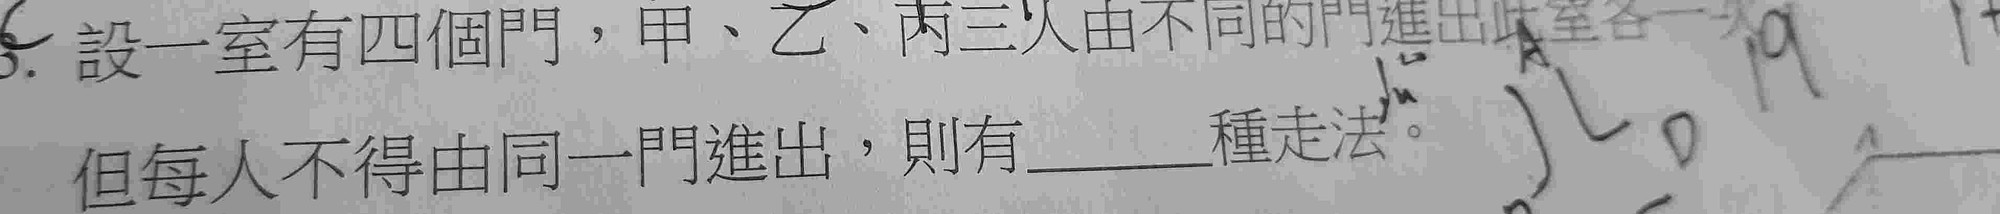 設一室有四個門，甲、乙、丙三人由不同的門進出此室各一次
但每人不得由同一門進出，則有______種走法。